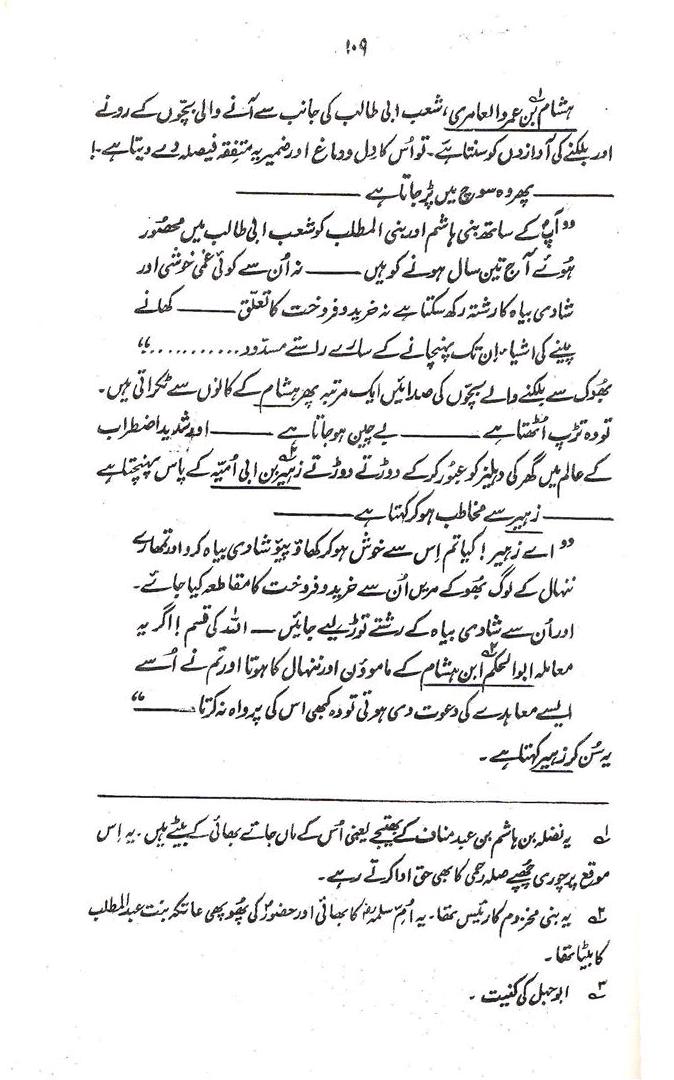 ۱۰۹
ہشام بن عمرو العامری، شعب ابی طالب کی جانب سے آنے والی بچّوں کے رونے
اور بلکنے کی آوازوں کو سنتا ہے۔ تو اُس کا دِل و دماغ اور ضمیر یہ متفقہ فیصلہ دے دیتا ہے۔!
——— پھر وہ سوچ میں پڑ جاتا ہے ———
”آپؐ کے ساتھ بنی ہاشم اور بنی المطلب کو شعب ابی طالب میں محصُور
ہُوئے آج تین سال ہونے کو ہیں ——— نہ اُن سے کوئی غمی خوشی اور
شادی بیاہ کا رشتہ رکھ سکتا ہے نہ خرید و فروخت کا تعلّق ——— کھانے
پینے کی اشیاء اِن تک پہنچانے کے سارے راستے مسدُود...........“
بھُوک سے بلکنے والے بچّوں کی صدائیں ایک مرتبہ پھر ہشام کے کانوں سے ٹکراتی ہیں۔
تو وہ تڑپ اُٹھتا ہے ——— بے چین ہو جاتا ہے ——— اور شدید اضطراب
کے عالم میں گھر کی دہلیز کو عبُور کر کے دوڑتے دوڑتے زہیر بن ابی اُمیّہ۲؎ کے پاس پہنچتا ہے
——— زہیر سے مخاطب ہو کر کہتا ہے ———
”اے زہیر! کیا تم اِس سے خوش ہو کر کھاؤ پیؤ شادی بیاہ کرو اور تمھارے
ننہال کے لوگ بھُوکے مریں اُن سے خرید و فروخت کا مقاطعہ کیا جائے۔
اور اُن سے شادی بیاہ کے رشتے توڑ لیے جائیں — اللہ کی قسم! اگر یہ
معاملہ ابوالحکم۳؎ ابن ہشام کے ماموؤں اور ننہال کا ہوتا اور تم نے اُسے
ایسے معاہدے کی دعوت دی ہوتی تو وہ کبھی اس کی پرواہ نہ کرتا ———“
یہ سُن کر زہیر کہتا ہے۔
۱؎ یہ نضلہ بن ہاشم بن عبد مناف کے بھتیجے یعنی اُس کے ماں جائے بھائی کے بیٹے ہیں۔ یہ اِس
موقع پر چوری چھُپے صلہ رحمی کا بھی حق ادا کرتے رہے۔
۲؎ یہ بنی مخزوم کا رئیس تھا۔ یہ اُمِّ سلمہؓ کا بھائی اور حضورؐ کی پھُوپھی عاتکہ بنت عبدالمطلب
کا بیٹا تھا۔
۳؎ ابوجہل کی کنیت۔